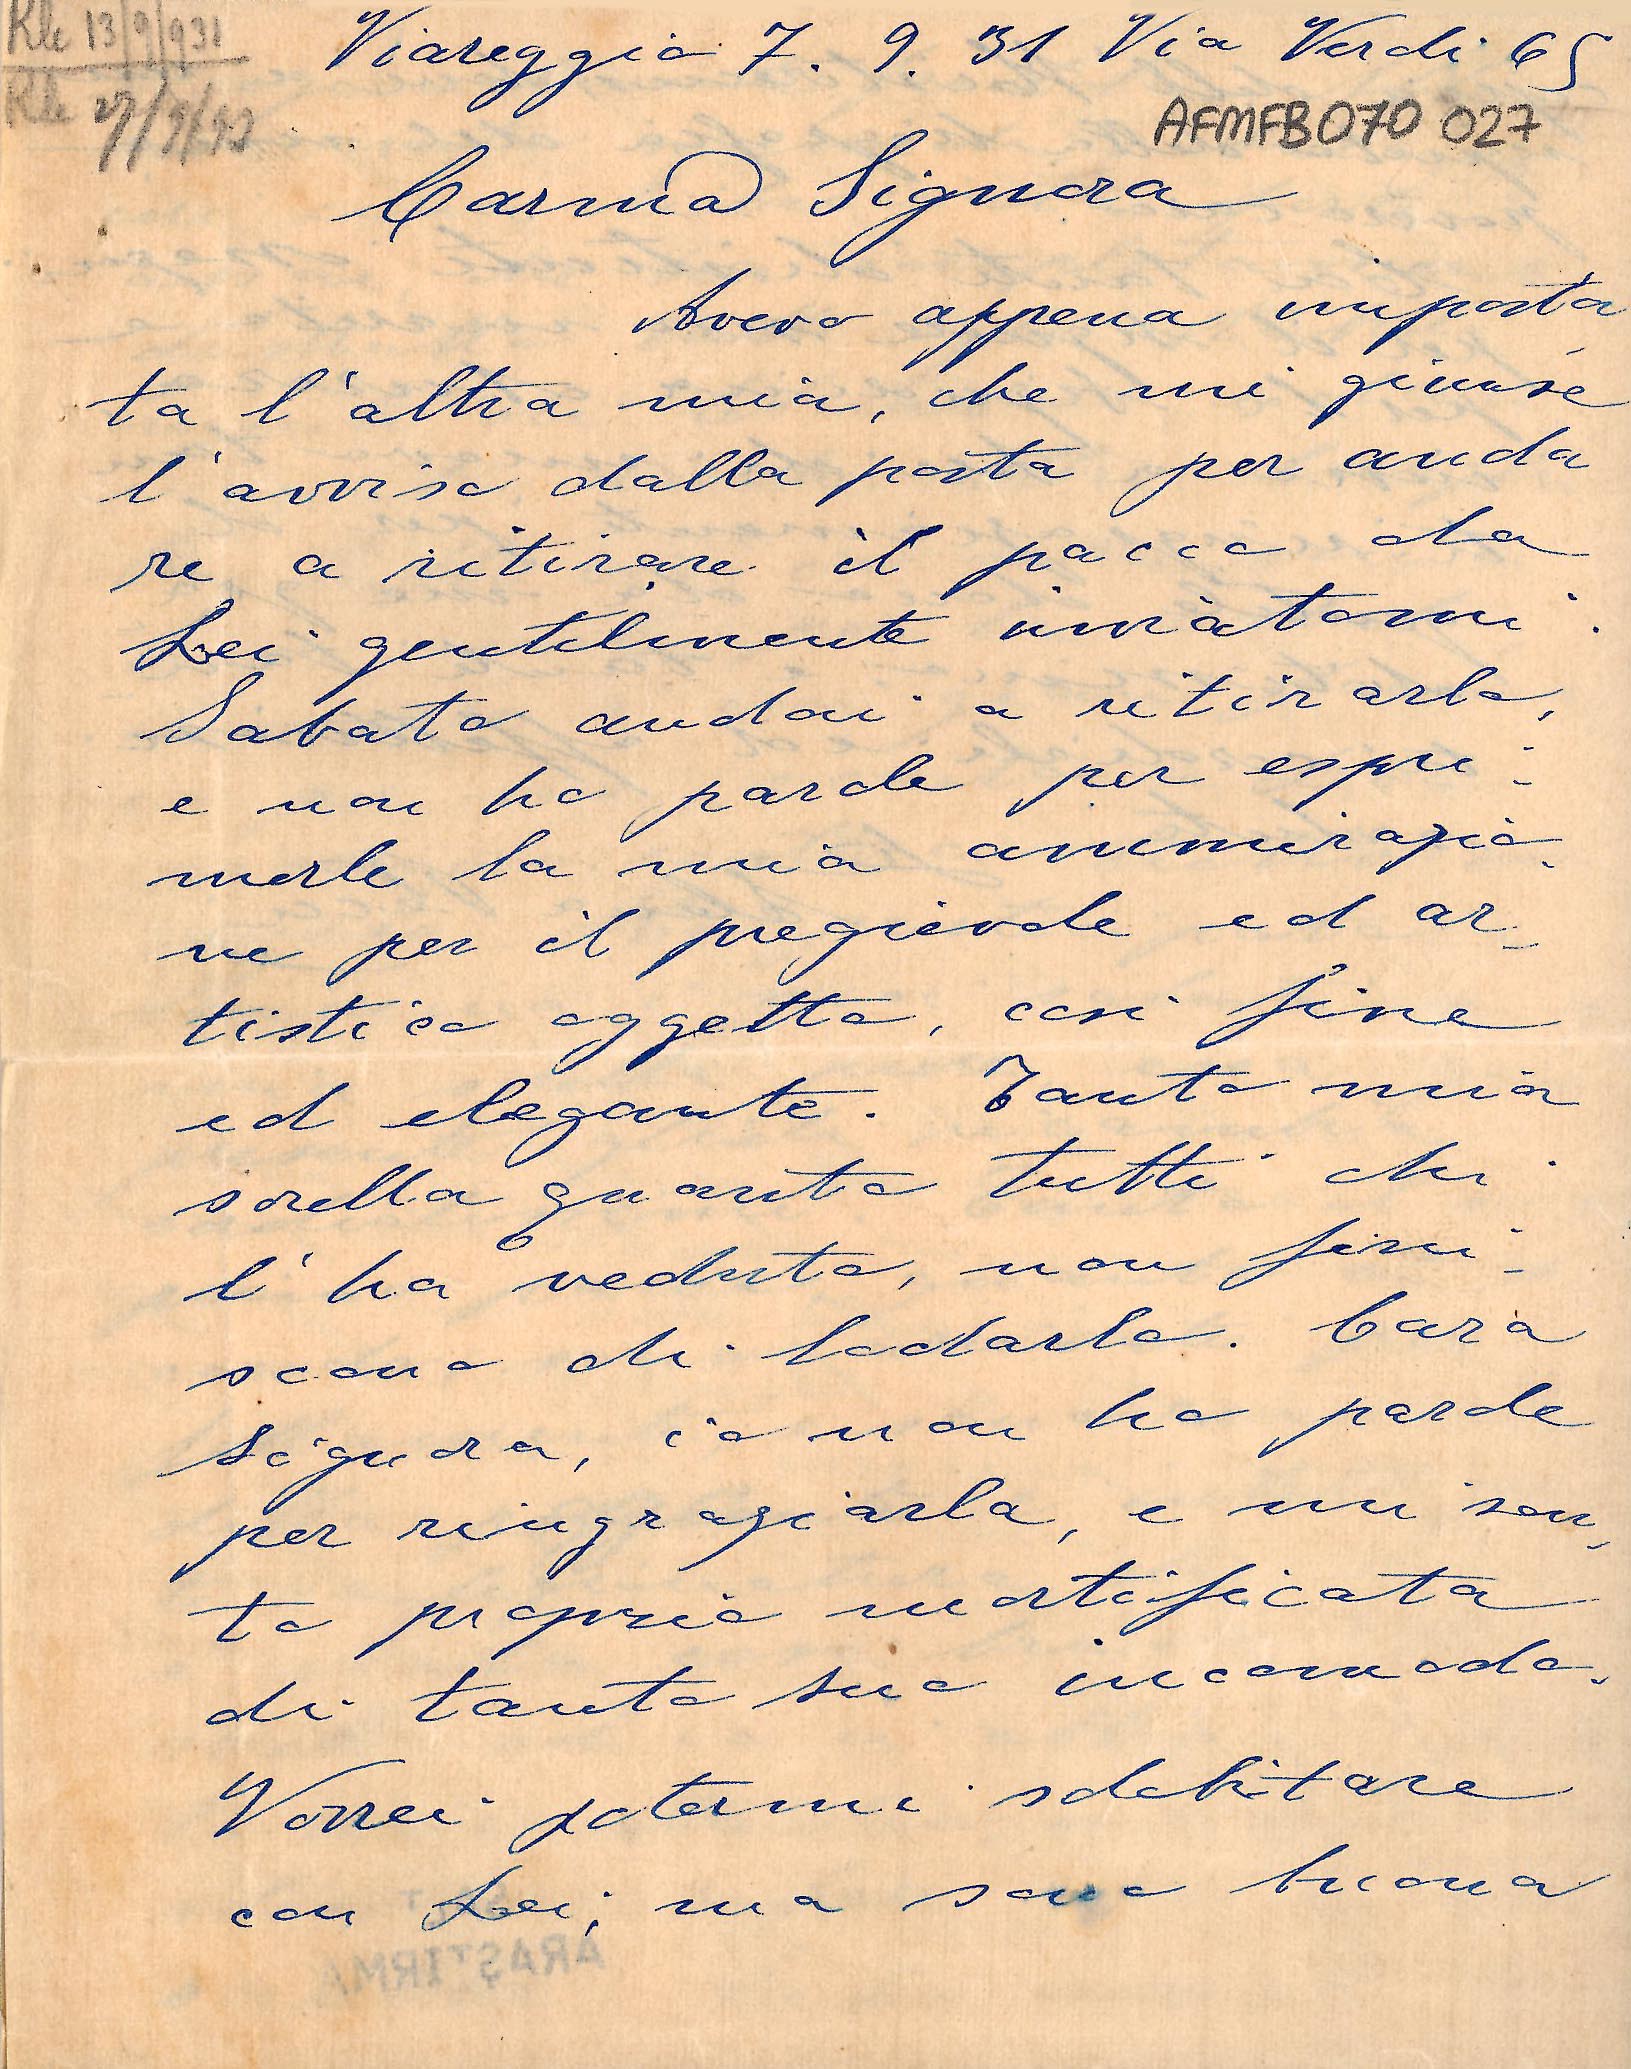 Rle 13/9/931
Viareggio 7. 9. 31 Via Verdi 65
Rle 27/9/93
AFMFB070 027
Carma Signora
Avevo appena imposta
ta l'altra mia, che mi giunse
l'avviso dalla posta per anda
re a ritirare il pacco da
Lei gentilmente inviatomi.
Sabato andai a ritirarlo,
e non ho parole per espri-
merle la mia ammirazio-
ne per il pregievole ed ar-
tistico oggetto, così fine
ed elegante. Tanto mia
sorella quanto tutti chi
l'ha veduto, non fini-
scono di lodarlo. Cara
Signora, io non ho parole
per ringraziarla, e mi sen-
to proprio mortificata
di tanto suo incomodo.
Vorrei potermi sdebitare
con Lei; ma sono buona
ARAŞTIRMA